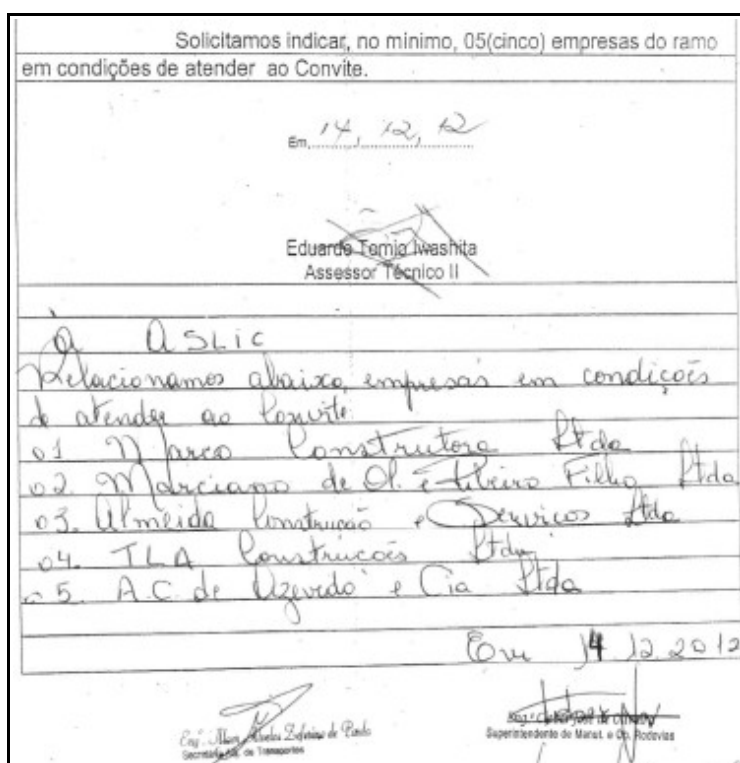 Solicitamos indicar, no minimo, 05(cinco) empresas do ramo
em condições de atender ao Convite.
Em, 14, 12, 12
Eduardo Tomio Iwashita
Assessor Técnico II
À ASLIC
Relacionamos abaixo, empresas em condições
de atender ao Convite:
01 Marco Construtora Ltda
02. Marciano de Ol. e Ribeiro Filho Ltda
03. Almeida Construção e Serviços Ltda
04. TLA Construções Ltda
05. A.C. de Azevedo e Cia Ltda
Em 14 12 2012
Eng.º de Paulo
Secretário Adj. de Transportes
Eng.º
Superintendente de Manut. e Op. Rodovias